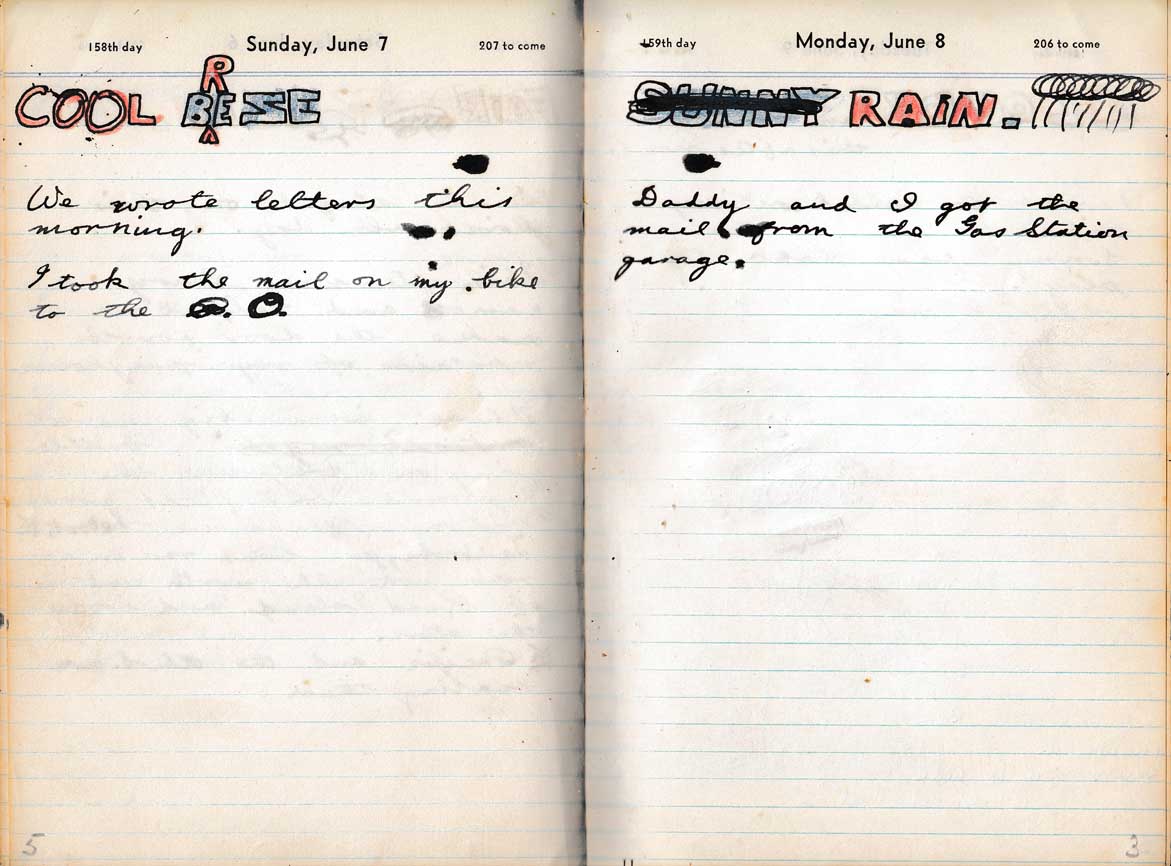 158th day Sunday, June 7 207 to come
R
COOL BEZE
We wrote letters this
morning.
I took the mail on my bike
to the O.
5
159th day Monday, June 8 206 to come
SUNNY RAiN.
Daddy and I got the
mail from the Gas Station
garage.
3